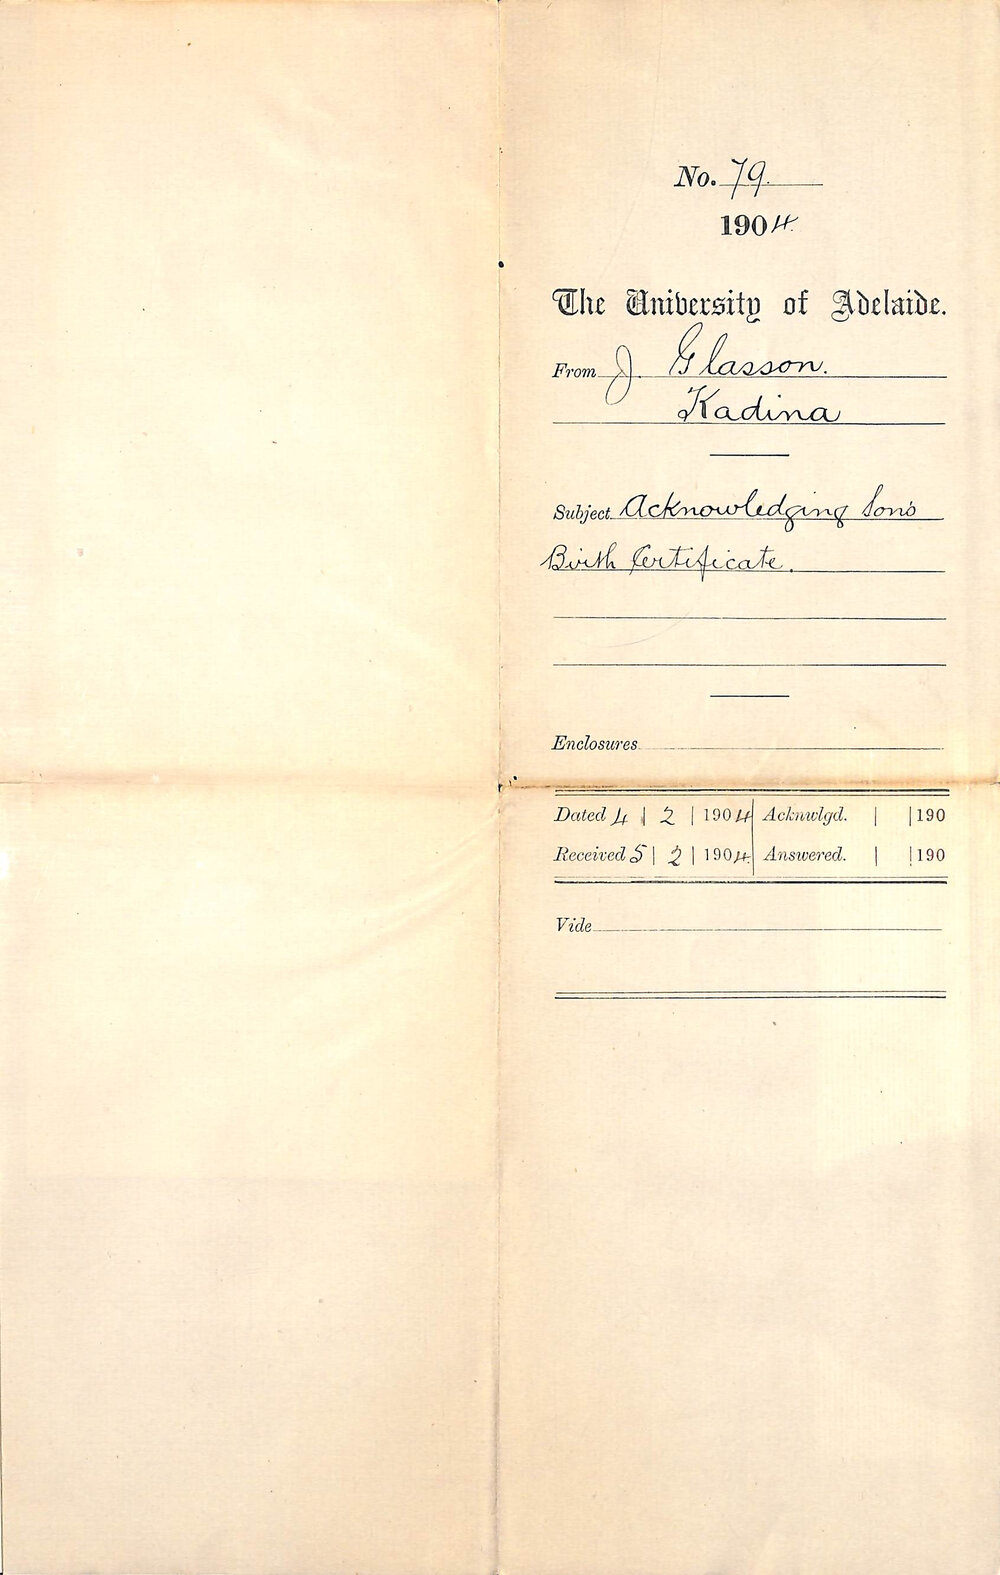 No. 79.
1904.
The University of Adelaide.
From J. Glasson.
Kadina
Subject Acknowledging Son's
Birth Certificate.
Enclosures
Dated 4 | 2 | 1904 Acknwlgd. | |190
Received 5 | 2 | 1904. Answered. | |190
Vide